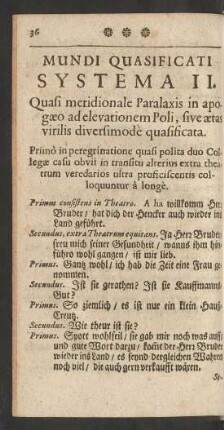 36
MUNDI QUASIFICATI
SYSTEMA II.
Quasi meridionale Paralaxis in apo-
gæo ad elevationem Poli, sive ætas
virilis diversimodè quasificata.
Primò in peregrinatione quasi polita duo Col-
legæ casu obvii in transitu alterius extra thea-
trum veredarios ultra proficiscentis col-
loquuntur à longè.
Primus consistens in Theatro. A ha willkomm Hr.
Bruder / hat dich der Hencker auch wieder ins
Land geführt.
Secundus, extra Theatrum equitans. Ja Herr Bruder
freu mich seiner Gesundheit / wanns ihm hin-
führo wohl gangen / ist mir lieb.
Primus. Gantz wohl / ich hab die Zeit eine Frau ge-
nommen.
Secundus. Ist sie gerathen? Ist sie Kauffmanns-
Gut?
Primus. So ziemlich / es ist nur ein klein Hauß-
Creutz.
Secundus. Wie theur ist sie?
Primus. Spott wohlfeil / sie gab mir noch was auf /
und gute Wort darzu / komt der Herr Bruder
wieder ins Land / es seynd dergleichen Wahren
noch viel / die auch gern verkaufft wären.
Se-